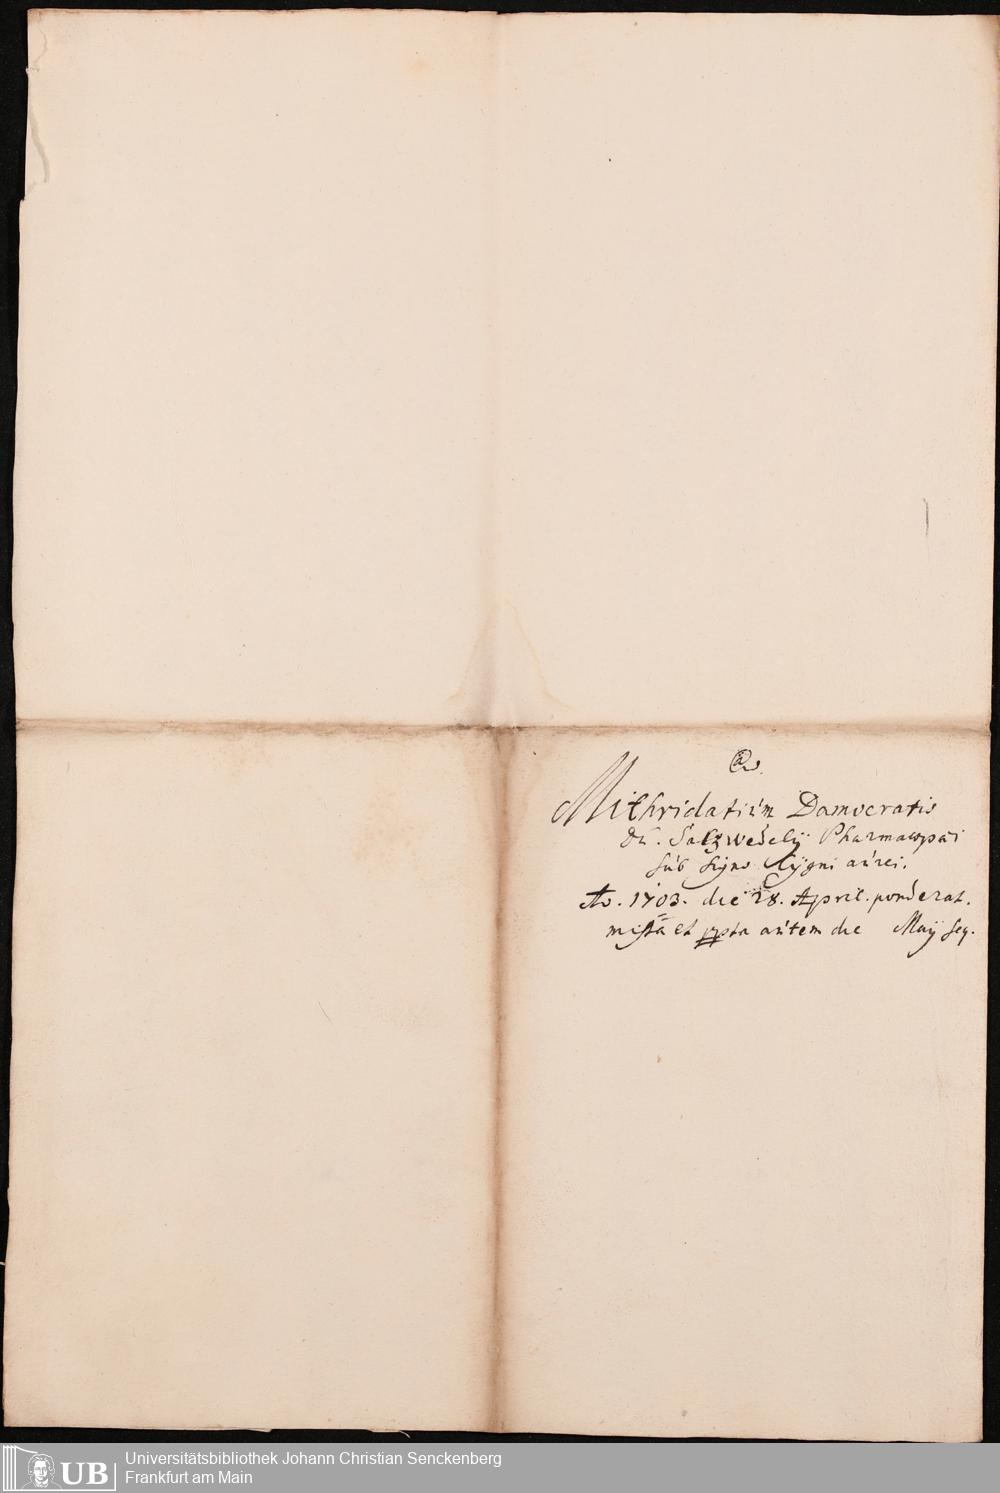 Mithridatium Damocratis
Dn. Salzwedelÿ Pharmacopæi
sub signo Cygni aurei.
Ao. 1703. die 28. April. ponderat.
mista et ppta autem die Maÿ seq.
Universitätsbibliothek Johann Christian Senckenberg
Frankfurt am Main
UB